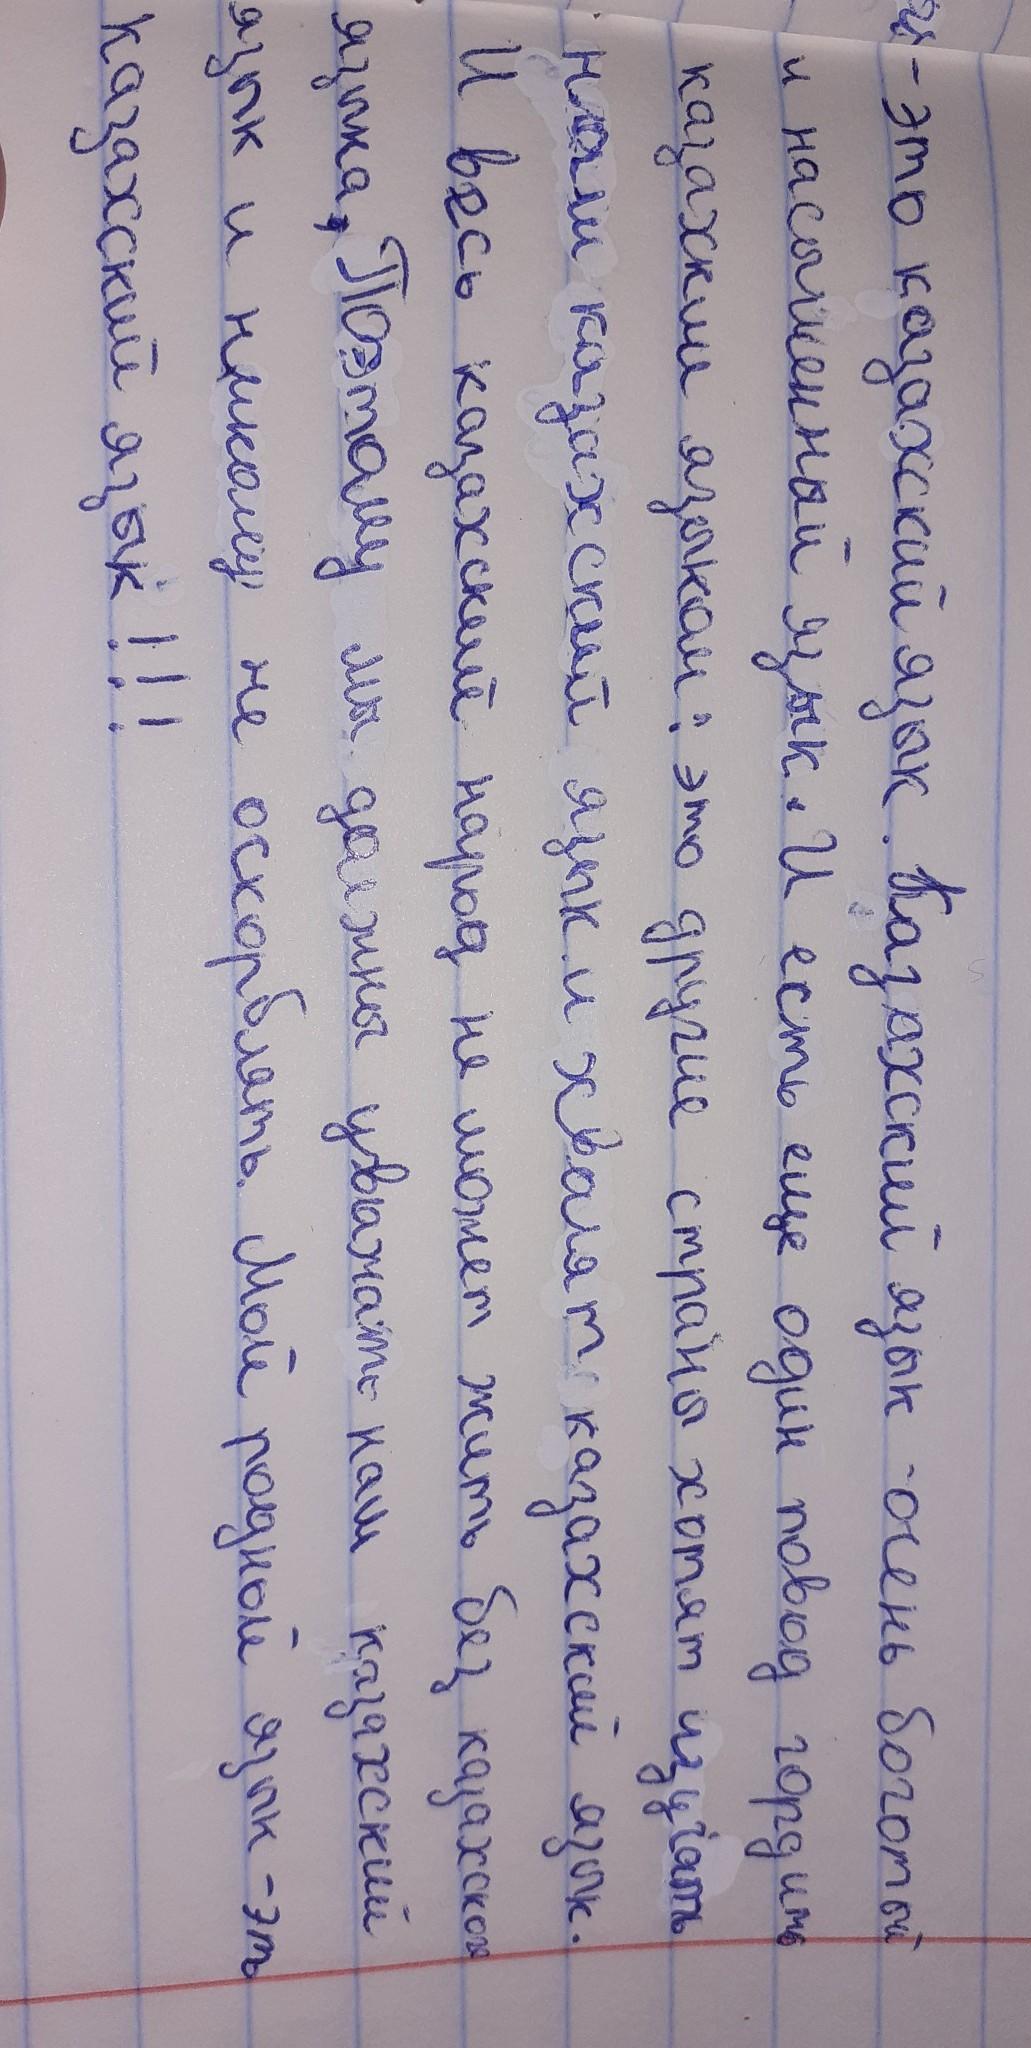 -это казахский язык. Казахский язык -очень боготый
и насыщенный язык. И есть еще один повод гордить
казахким языком: это другие страны хотят изучать
нами казахский язык и хвалят казахский язык.
И весь казахский народ не может жить без казахског
языка, Поэтому мы должны уважать наш казахский
язык и никому не оскорблять. Мой родной язык -эт
казахский язык!!!